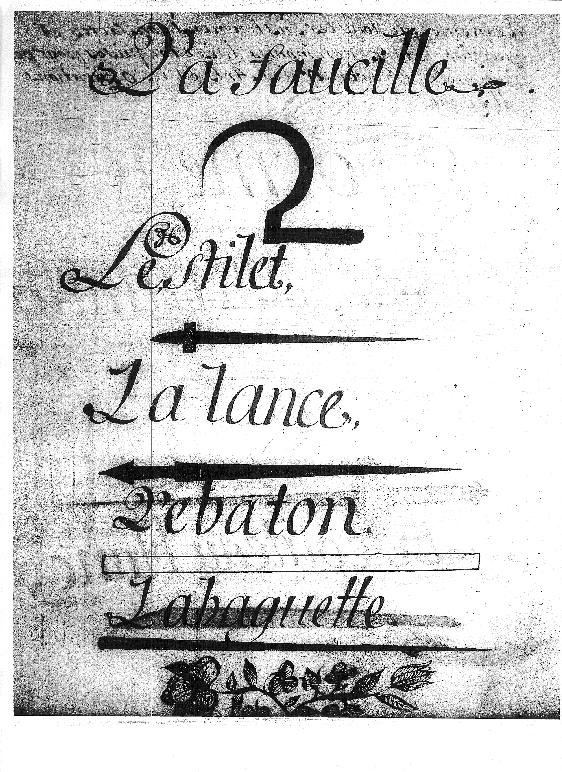 La faucille.
Le stilet,
La lance,
Lebaton.
Labaguette.